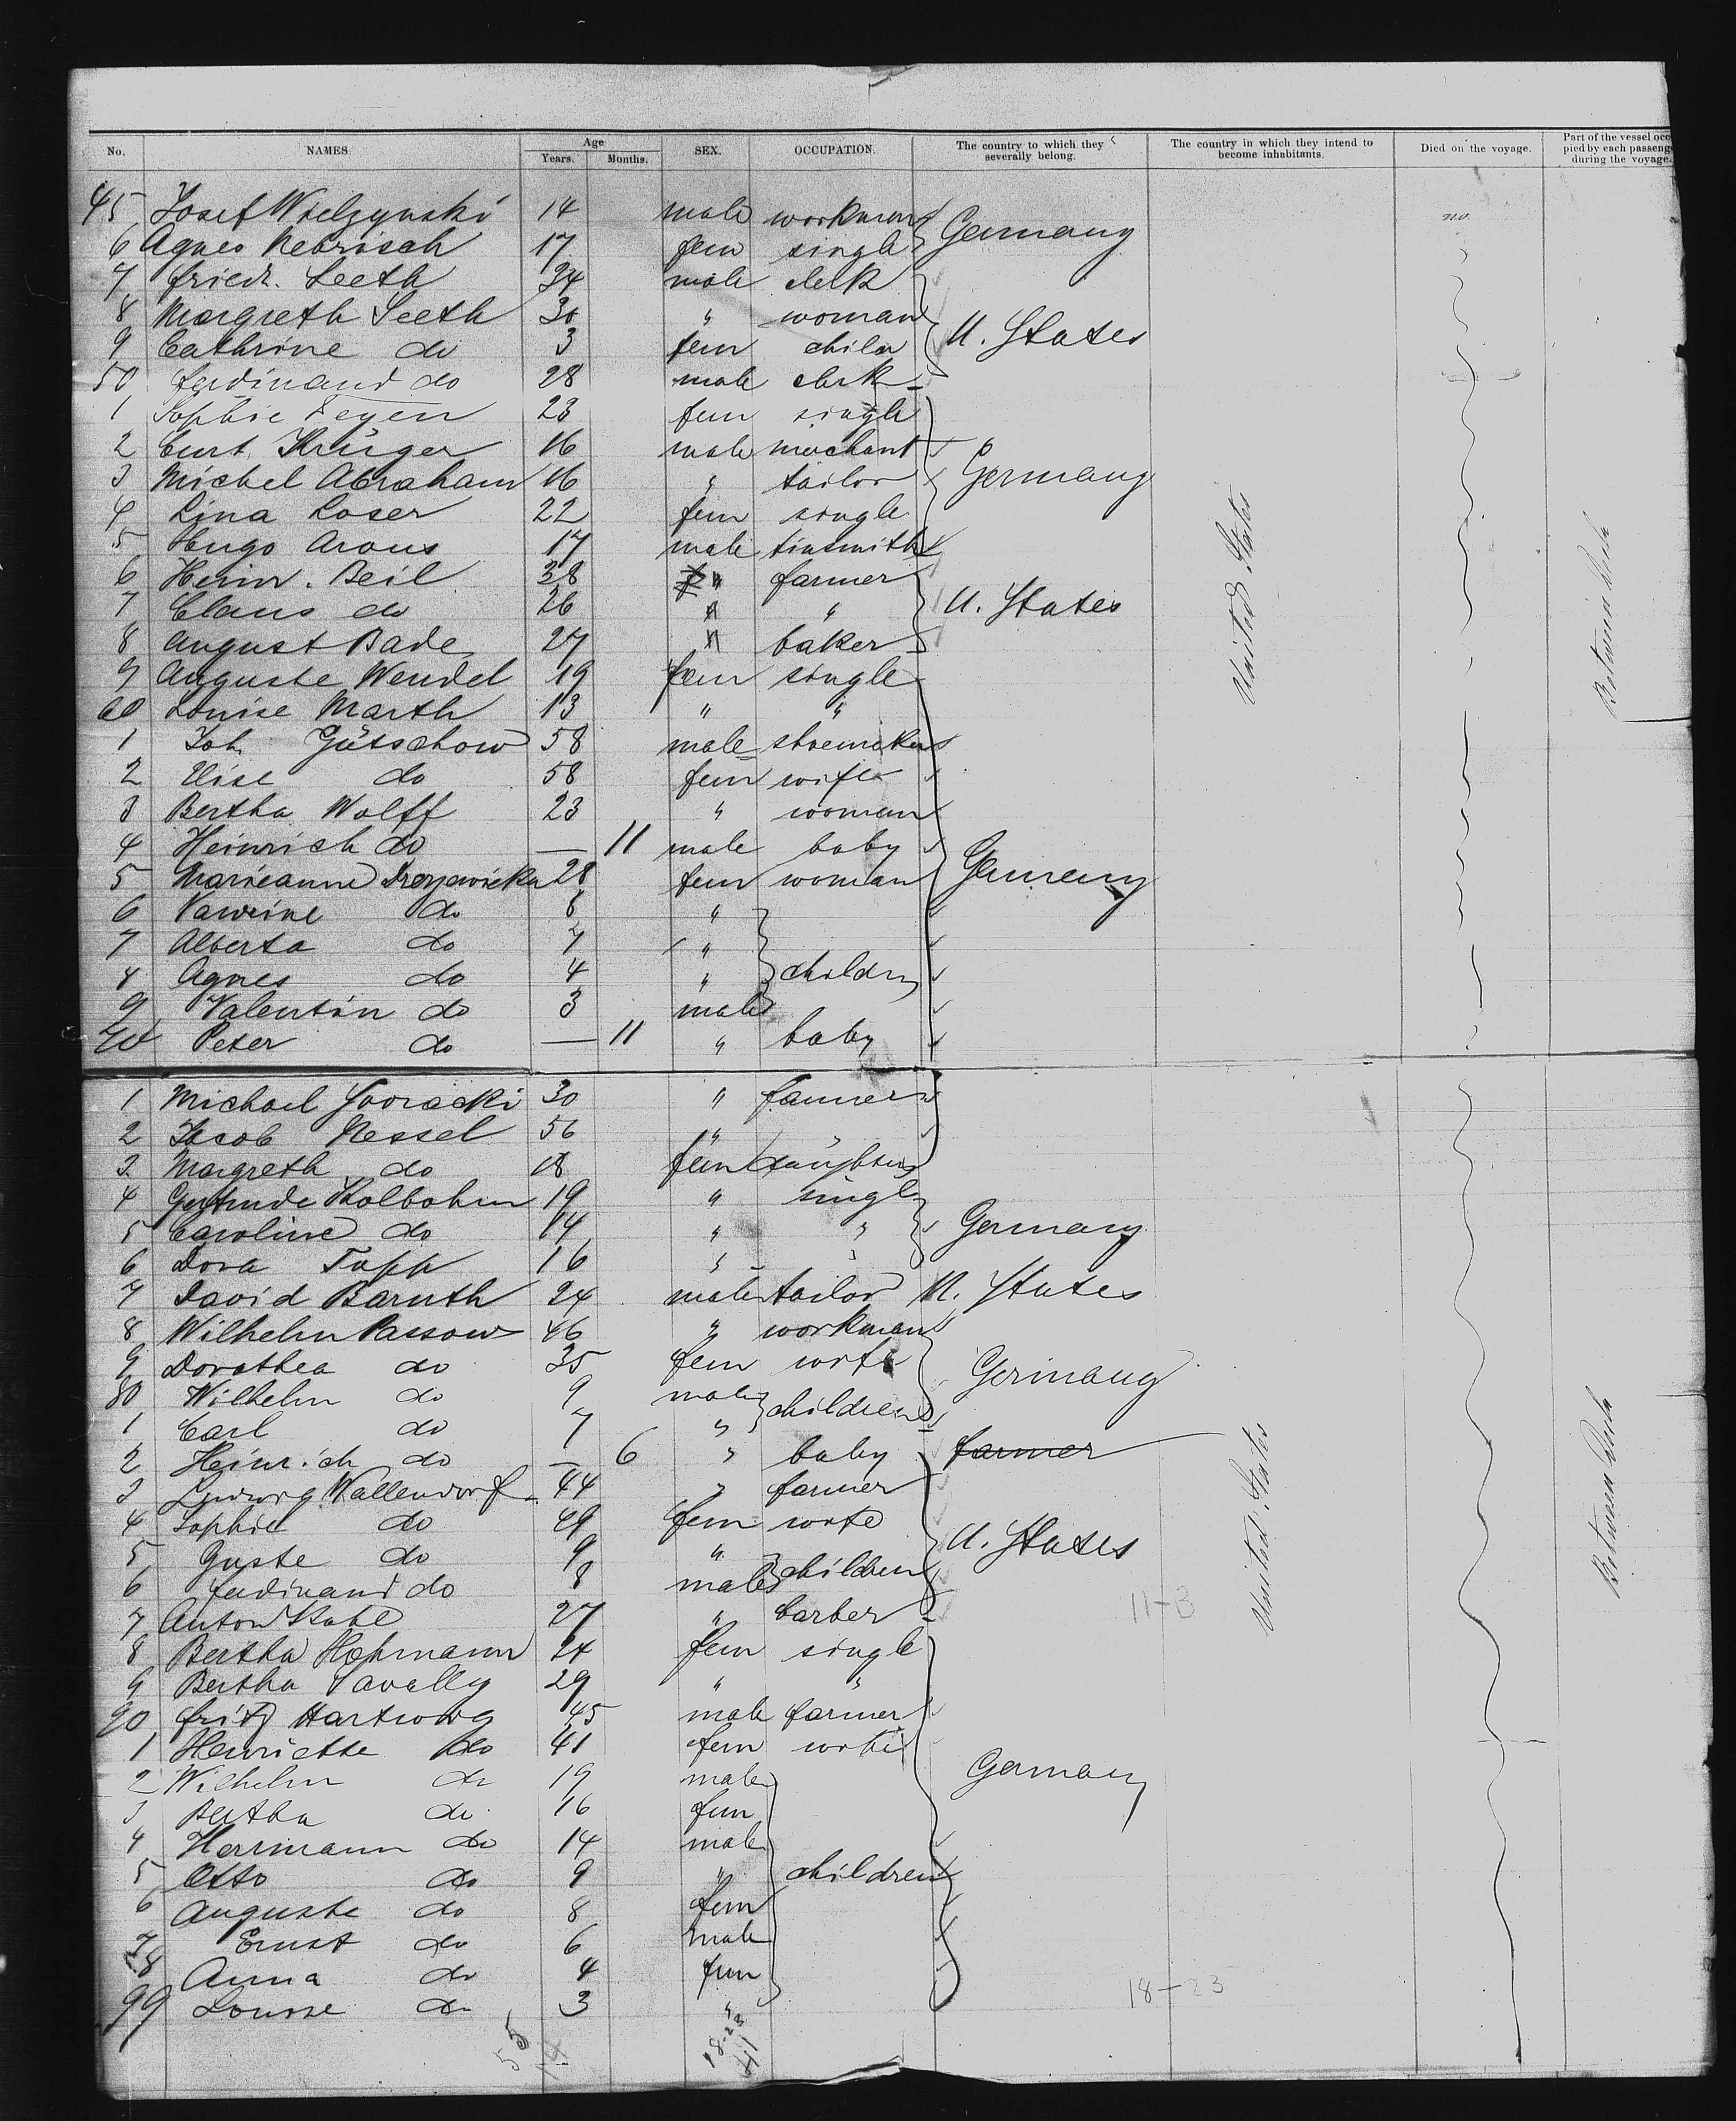 No. NAMES. Age Years. Months. SEX. OCCUPATION. The country to which they severally belong. The country in which they intend to become inhabitants. Died on the voyage. Part of the vessel occupied by each passenger during the voyage.
45 Josef Wielzynski 14 male workman Germany no
6 Agnes Nebrisch 17 fem single
7 Friedr. Seeth 34 male clerk
8 Margreth Seeth 30 " woman U. States
9 Cathrine do 3 fem child
50 Ferdinand do 28 male clerk
1 Sophie Feyen 23 fem single
2 Curt Krüger 16 male merchant
3 Michel Abraham 16 " tailor Germany
4 Lina Loser 22 fem single
5 Hugo Arons 17 male tinsmith
6 Heinr. Beil 38 " farmer
7 Claus do 26 " " U. States
8 August Bade 27 " baker
9 Auguste Wendel 19 fem single
60 Louise Marth 13 " "
1 Joh Gütschow 58 male shoemaker
2 Elise do 58 fem wife
3 Bertha Wolff 23 " woman
4 Heinrich do — 11 male baby
5 Marieanne 28 fem woman Germany
6 do 8 "
7 Alberta do 7 "
8 Agnes do 4 " childrn
9 Valentin do 3 male
70 Peter do — 11 " baby
United States
Between Deck
1 Michael 30 " farmer
2 Jacob Nessel 56 "
3 Margreth do 18 fem daughter
4 Gertrude Kolbohm 19 " single
5 Caroline do 14 " " Germany
6 Dora Topp 16 " "
7 David Baruth 24 male tailor U. States
8 Wilhelm Passow 46 " workman
9 Dorothea do 35 fem wife Germany
80 Wilhelm do 9 male children
1 Carl do 7 "
2 Heinrich do — 6 " baby farmer
3 Ludwig Wallendorf 44 " farmer
4 Sophie do 49 fem wife U. States
5 Guste do 9 " children
6 Ferdinand do 8 male
7 Anton Stahl 27 " barber 11-3
8 Bertha Hopmann 24 fem single
9 Bertha Savally 29 " "
90 Fritz Hartwig 45 male farmer
1 Henriette do 41 fem wife
2 Wilhelm do 19 male Germany
3 Bertha do 16 fem
4 Herrmann do 14 male
5 Otto do 9 " children
6 Auguste do 8 fem
7 Ernst do 6 male
98 Anna do 4 fem
99 Lousse do 3 " 18-23
United States
Between Deck
55
18-23
41